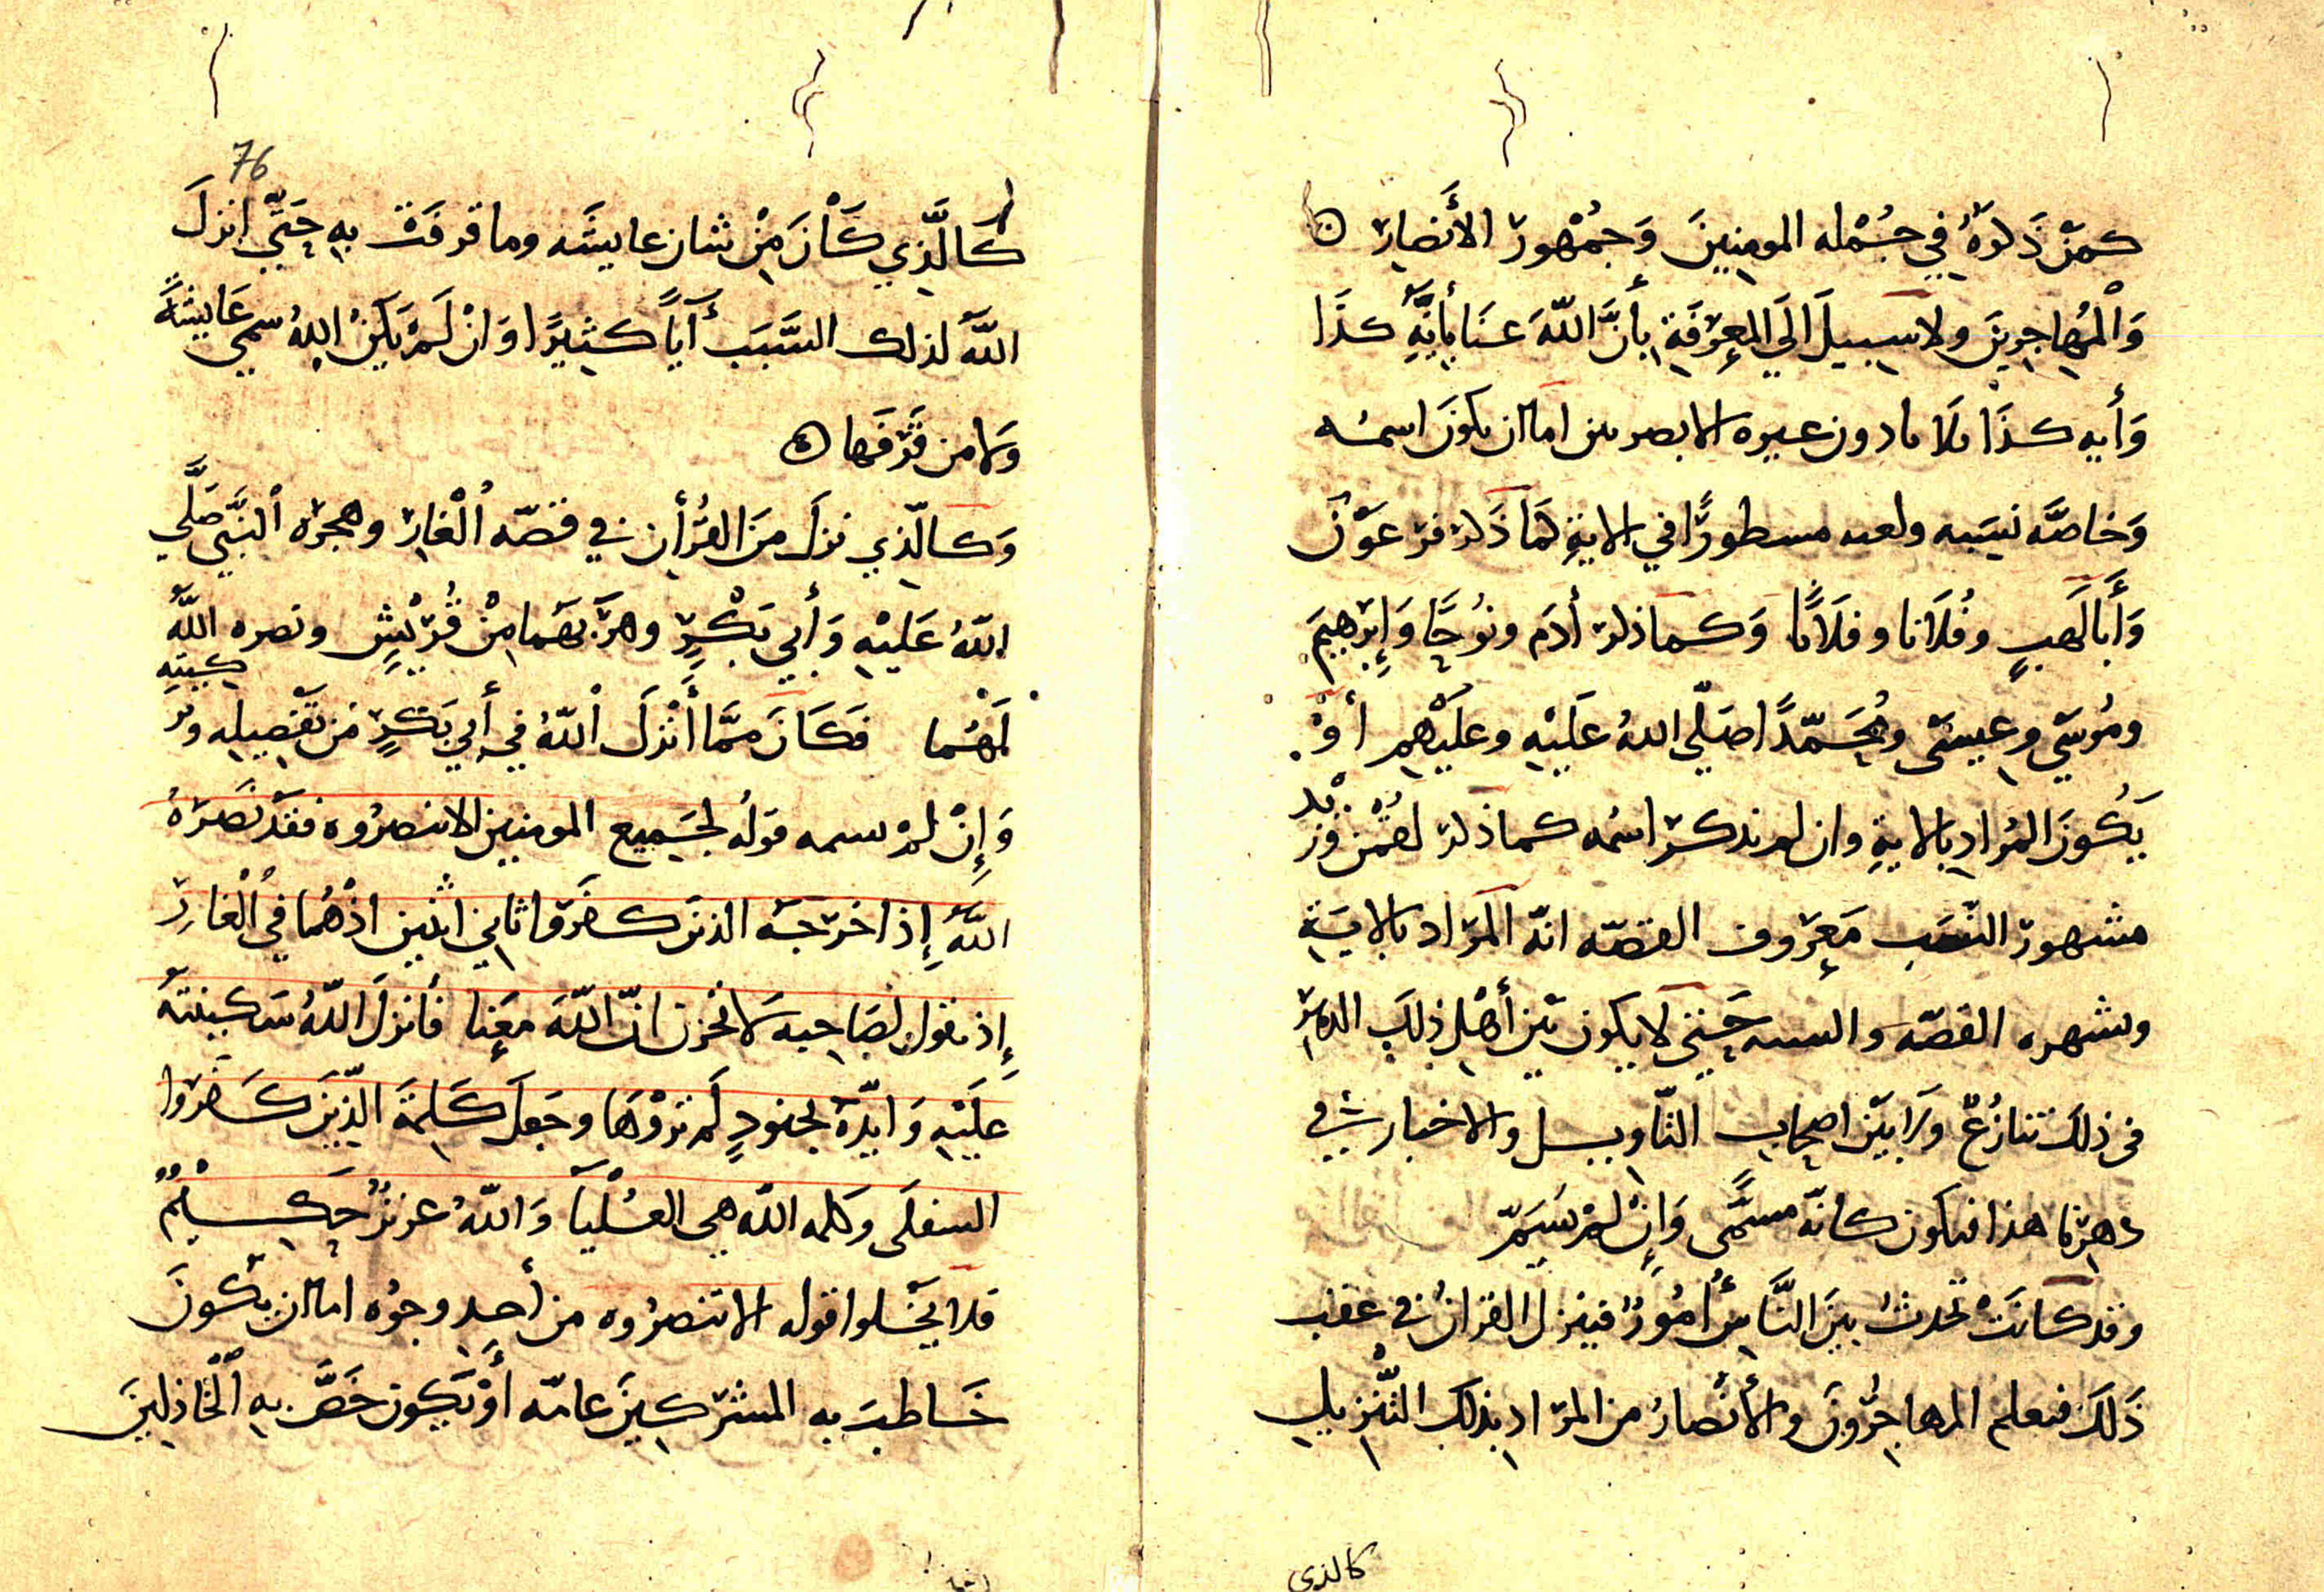 كمن ذكره في جمله المومنين وجمهور الأنصار
والمهاجرين ولا سبيل الى المعرفة بأن الله عنا بأيه كذا
وأيه كذا بلالا دون غيره الا بامرين اما ان يكون اسمه
وخاصه نسبه ولعه مسطورًا في الاية كما ذكر فرعون
وأبا لهبٍ وفلانا وفلانًا وكما ذكر أدم ونوحًا وإبرهيم
وموسى وعيسى ومحمّدًا صلّى الله عليه وعليهم أوْ
يكون المراد بالاية وان لم نذكر اسمه كما ذكر لقمن
مشهور النسب معروف القصّه انّه المراد بالاية
وبشهره القصّه والنسب حتى لا يكون بين أهل ذلك الدهر
في ذلك تنازعٌ ولا بين اصحاب التّاويل والاخبار في
دهرنا هذا فيكون كانّه مسمًّى وإنْ لمْ يُسَمّ
وقد كانت تحدث بين النّاس أمورٌ فينزل القران في عقب
ذلك فيعلم المهاجرون والأنصارُ من المراد بذلك التّنزيل
كالذي
76
كالّذي كان من شان عايشه وما قرفت به حتّى انزل
اللّه لذلك السّبب أيًا كثيرًا وانْ لمْ يكن اللهُ سمى عايشة
ولا من قرفها
وكالّذي نزل من القرأن في قصّه الْغار وهجره النبّي صلّى
اللّه عليْه وأبي بكْرٍ وهربهما منْ قُريْشٍ ونصره اللّه
لهُما فكان ممّا أنْزل اللّهُ في أبي بكرٍ من تفضيله وتزكيته
وإنْ لمْ يسمه قولهُ لجميع المومنين الا تنصروه فقد نصرهُ
اللّهُ إذ اخرجه الذين كفروا ثاني اثنين اذْهُما في الْغارِ
إذ يقول لصاحبه لا تحزن انّ اللّه معنا فأنزل اللّهُ سكينته
عليْه وايّدهُ بجنودٍ لم تروْها وجعل كلمة الّذين كفروا
السفلى وكلمه اللّه هي العُلْيا واللّهُ عزيزٌ حكيمٌ
فلا يخلوا قوله الا تنصروه من أحد وجوه اما ان يكون
خاطب به المشركين عامّه أوْ يكون خصّ به الْخاذلين